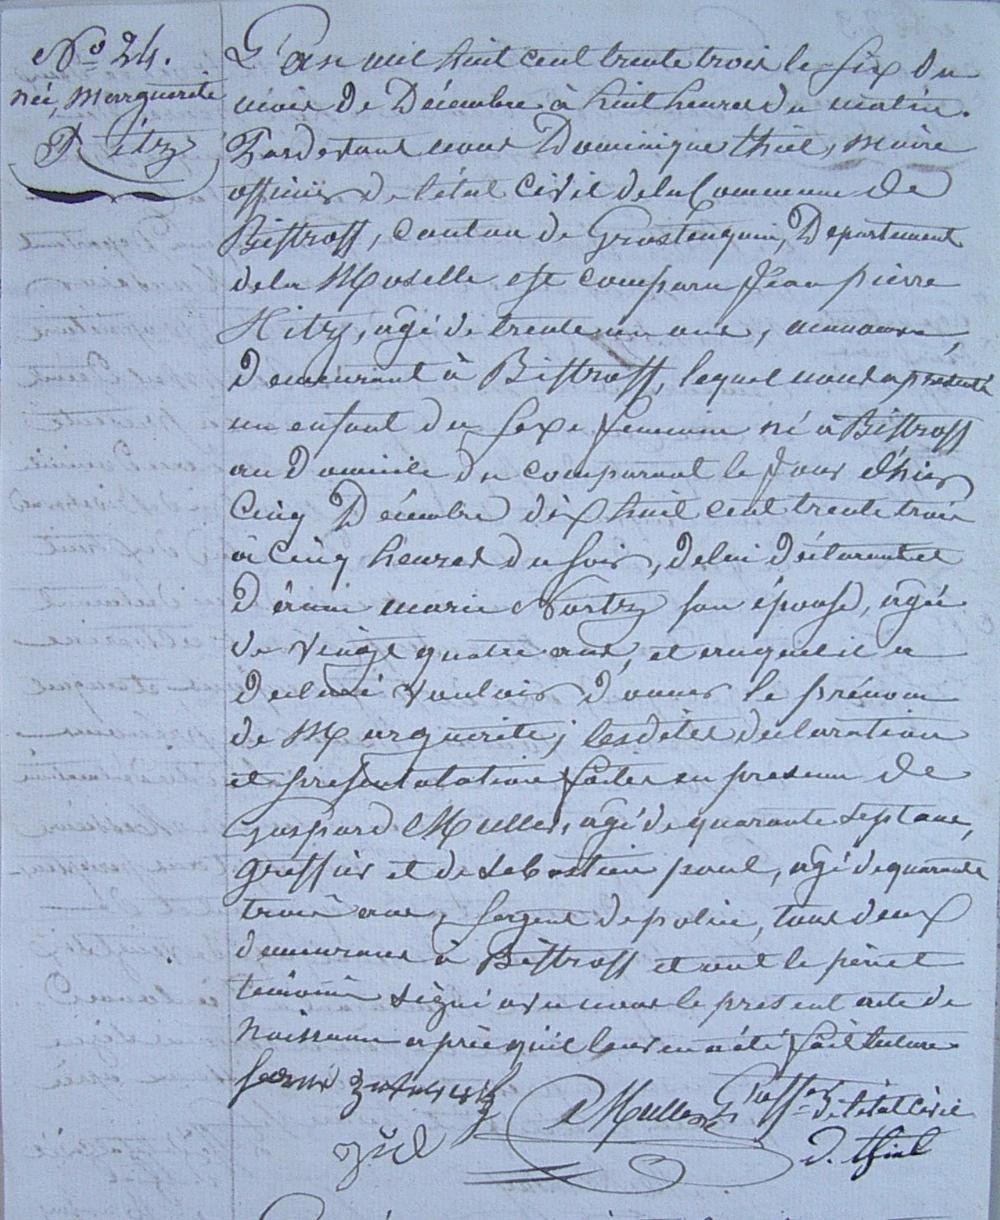 N° 24.
née, Marguerite
Hitz
L'an mil huit cent trente trois le six du
mois de Décembre à huit heures du matin.
Pardevant nous Dominique thiel, Maire
officier de l'état Civil de la Commune de
Bistroff, canton de Grostenquin, Departement
de la Moselle est comparu Jean pierre
Hitz, agé de trente un ans, manoeuvre,
Demeurant à Bistroff, lequel nous a présenté
un enfant du sexe feminin né à Bistroff
au Domicile du comparant le Jour d'hier
Cinq Décembre dix huit cent trente trois
à Cinq heures du soir, de lui déclarant et
d'anne marie Nortz son épouse, agée
de vingt quatre ans, et auquel il a
declaré vouloir donner le prénom
de Marguerite; lesdites declaration
et présentatation faites en presence de
Gaspard Muller, agé de quarante sept ans,
greffier et de Sebastien paul, agé de quarante
trois ans, sergent de police, tous deux
demeurans à Bistroff et ont le père et
temoins signé avec nous le present acte de
Naissance après qu'il leur en a été fait lecture
Muller Greffer
de l'état Civil
D. thiel